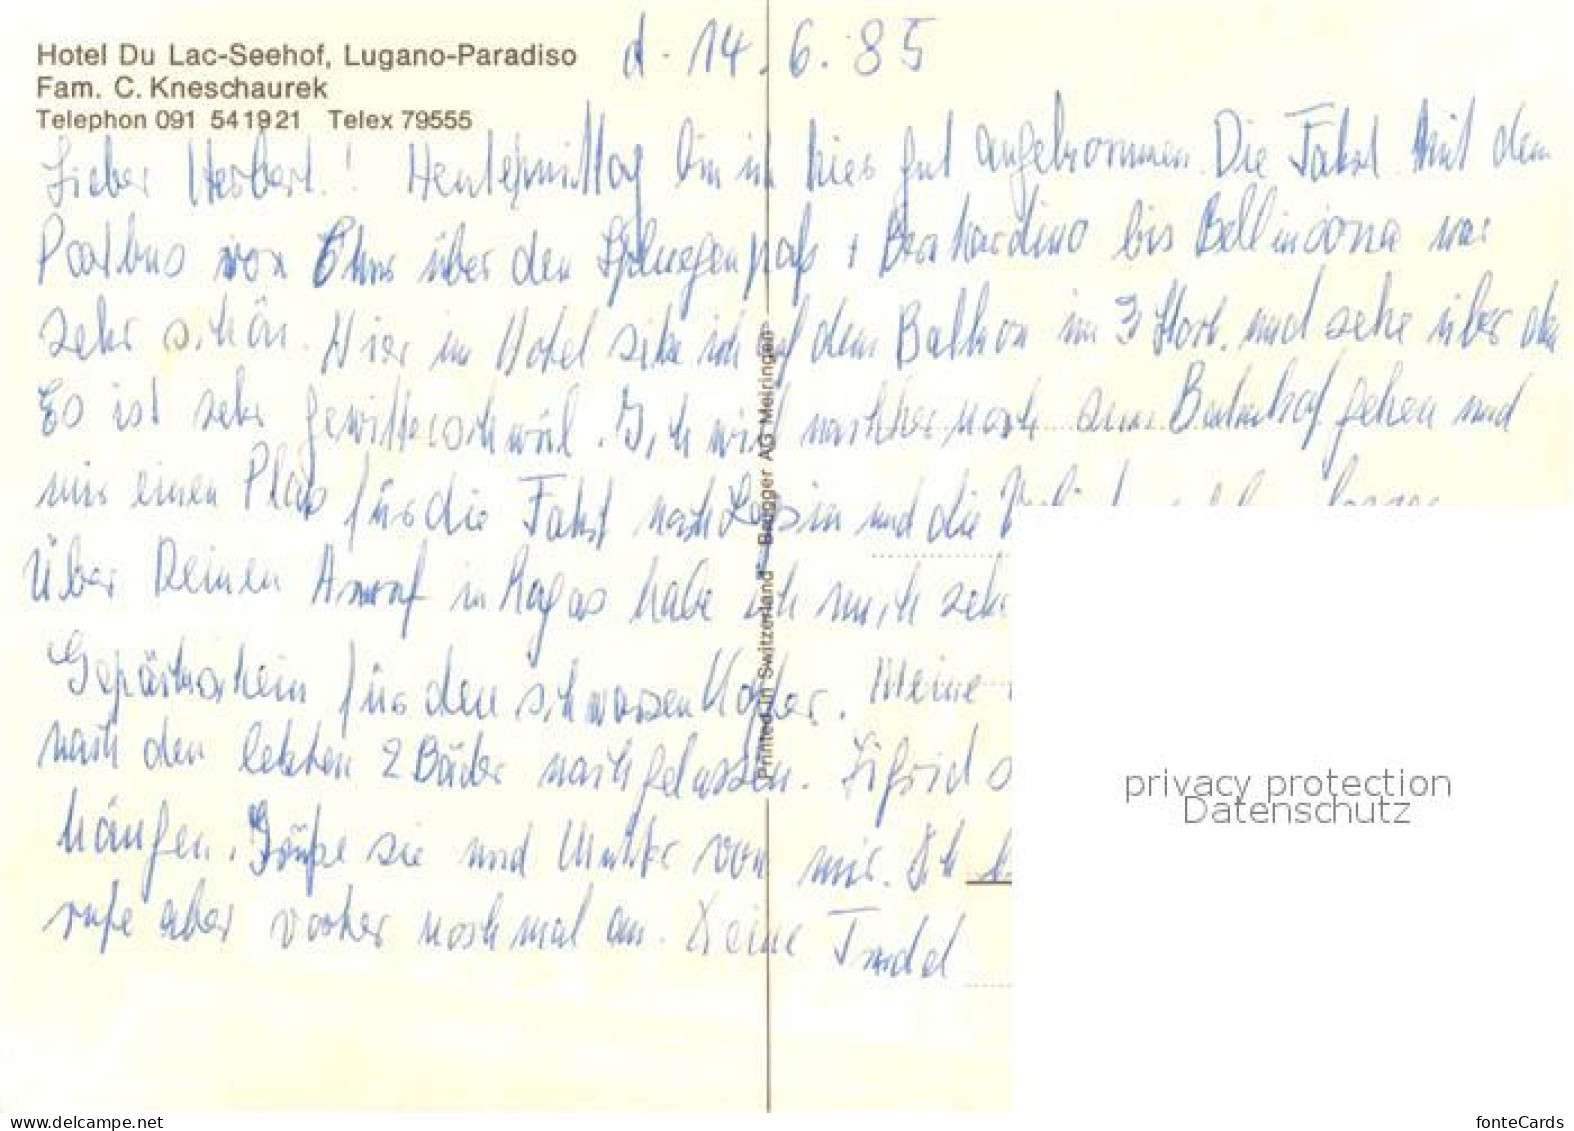 Hotel Du Lac-Seehof, Lugano-Paradiso
Fam. C. Kneschaurek
Telephon 091 541921 Telex 79555
d. 14.6.85
Lieber Herbert! Heutepmittag bin ich hier gut angekommen. Die Fahrt mit dem
Postbus von Chur über den Spluegenpaß + Bernhardino bis Bellinzona war
sehr schön. Hier im Hotel sitze ich auf dem Balkon im 3 Stock. und sehe über den
Es ist sehr gewitterschwül. Ich will nachher noch zum Bahnhof gehen und
mir einen Platz für die Fahrt nach und die
Über Deinen Anruf in Ragas habe ich mich sehr
Gepäckschein für den schwarzen Koffer. Meine
nach den letzten 2 Bäder nachgelassen. Sigrid
hängen. Grüße sie und Mutter von mir. Ich
rufe aber vorher nochmal an. Deine Trudel
Printed in Switzerland - Brügger AG Meiringen
privacy protection
Datenschutz
www.delcampe.net
fonteCards